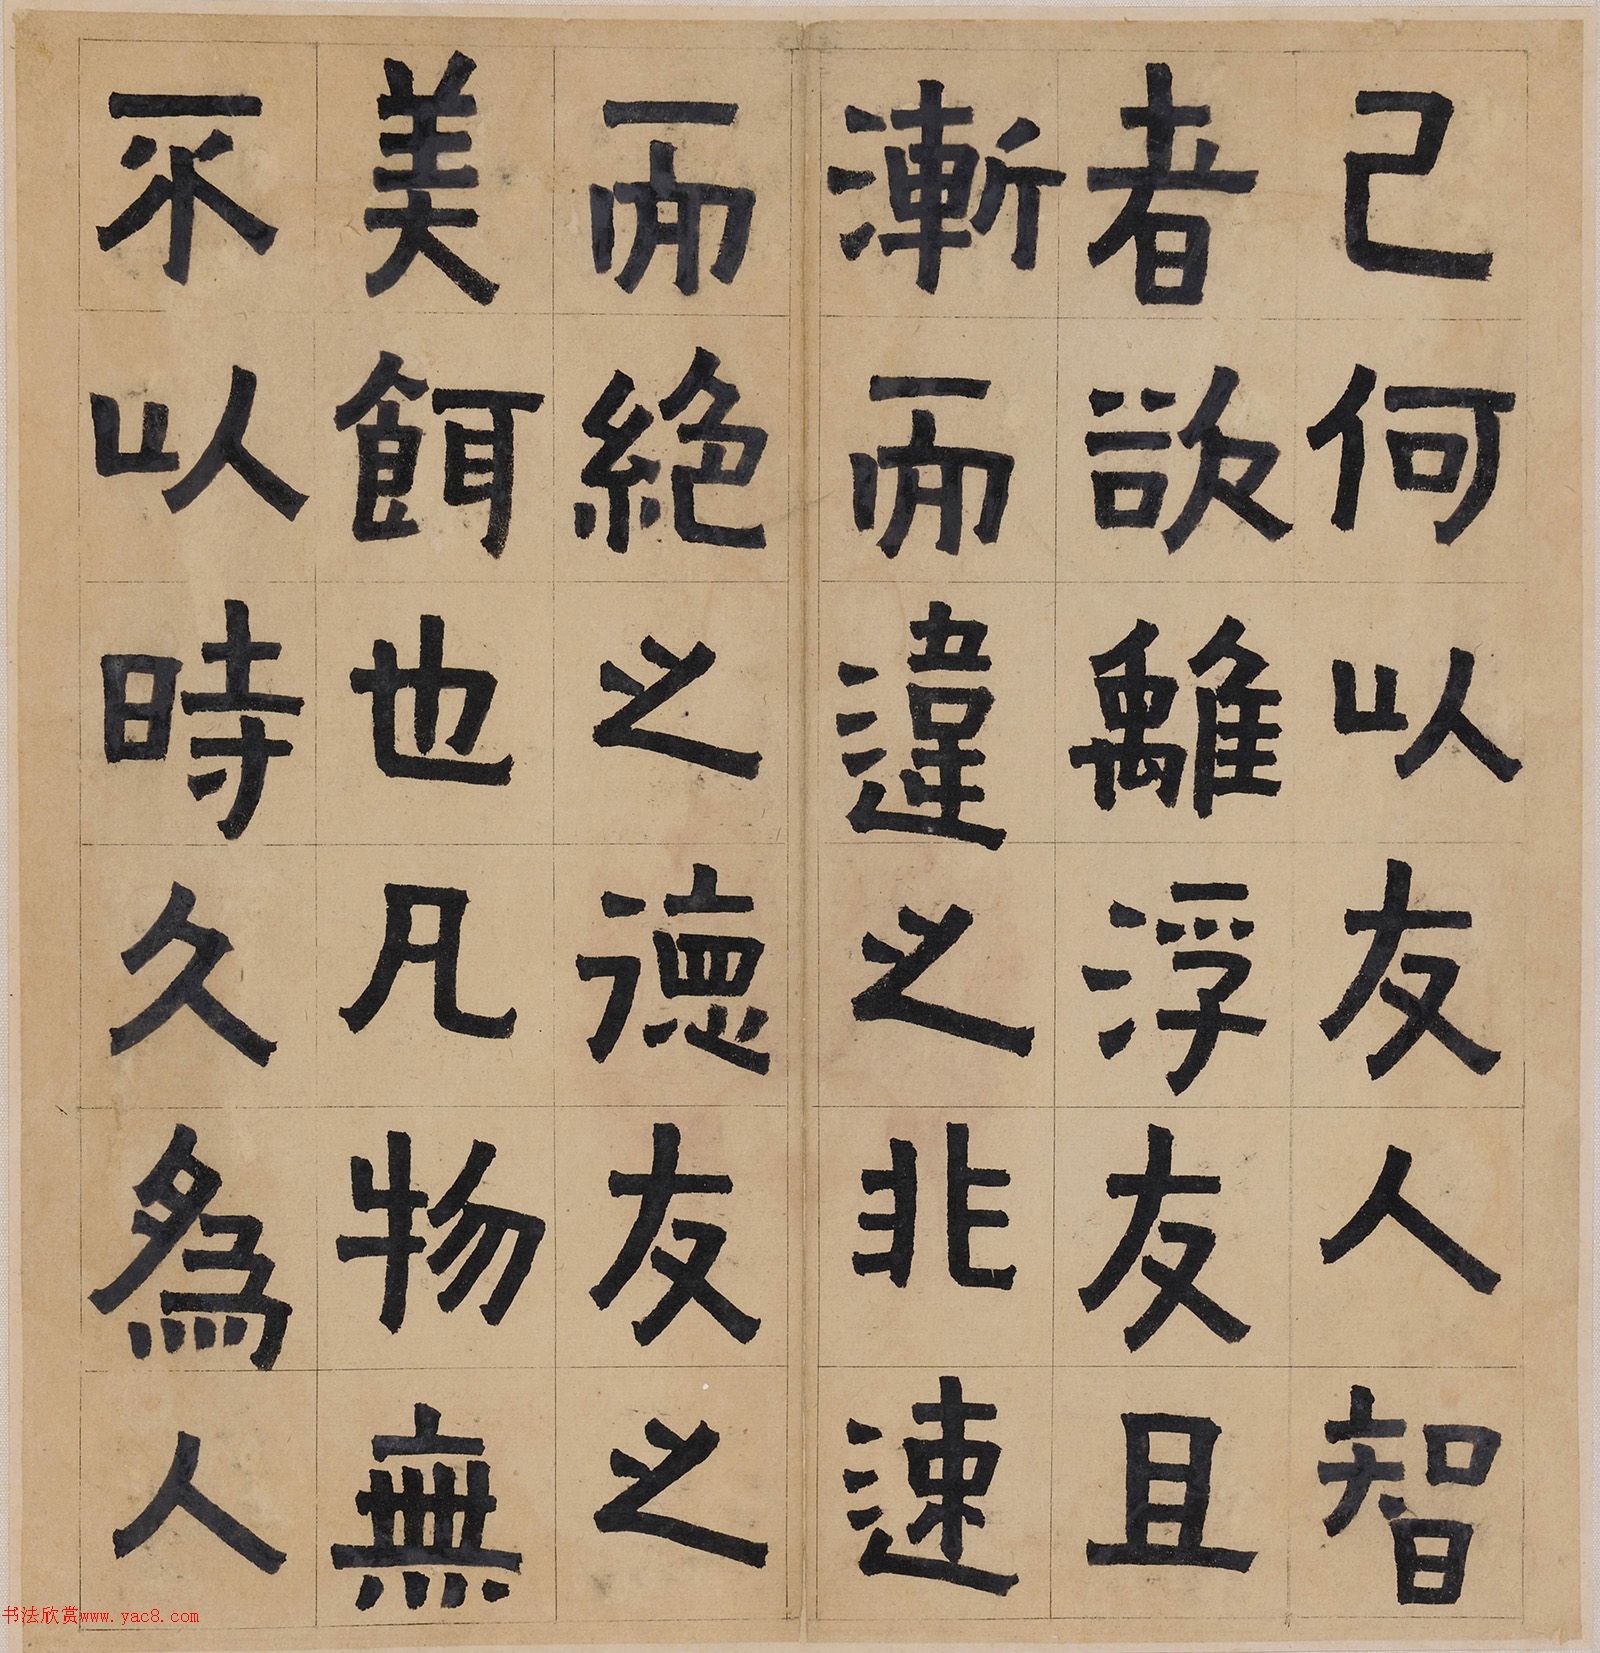 己何以友人智
者欲離浮友且
漸而違之非速
而絕之德友之
美餌也凡物無
不以時久為人
书法欣赏www.yac8.com